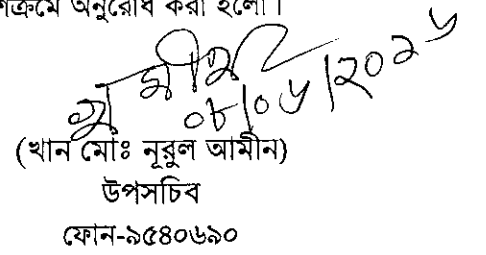 শক্রমে অনুরোধ করা হলো।
০৮/০৬/২০১৬
(খান মোঃ নূরুল আমীন)
উপসচিব
ফোন-৯৫৪০৬৯০